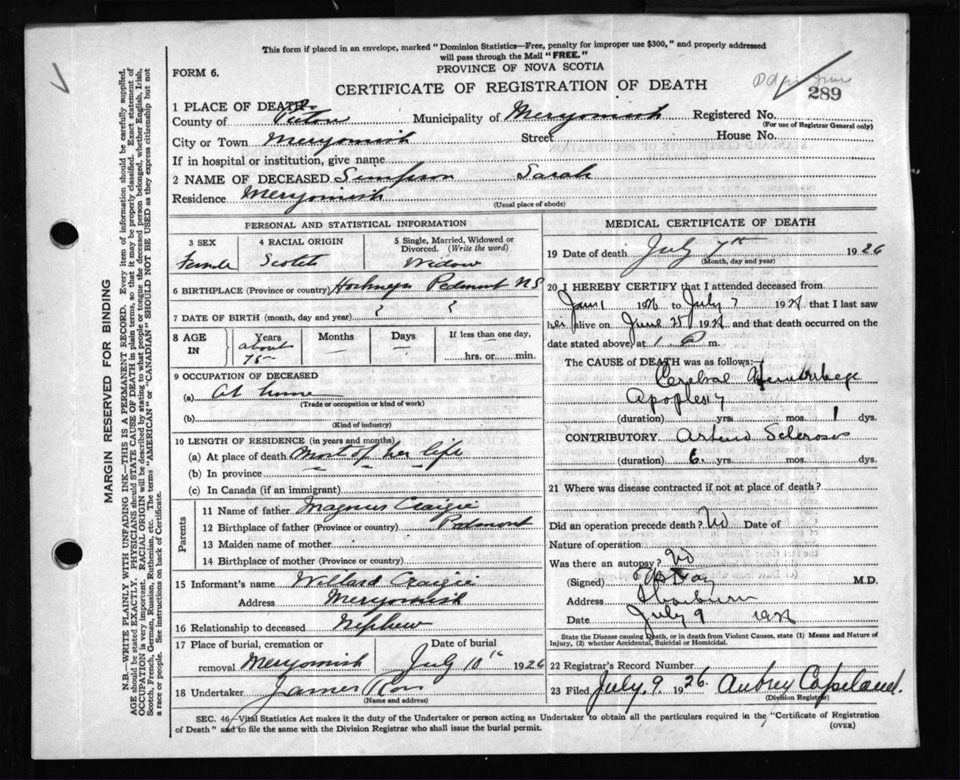 This form if placed in an envelope, marked "Dominion Statistics—Free, penalty for improper use $300," and properly addressed
will pass through the Mail "FREE."
PROVINCE OF NOVA SCOTIA
FORM 6.
CERTIFICATE OF REGISTRATION OF DEATH
289
1 PLACE OF DEATH
County of Pictou Municipality of Merigomish Registered No.
(For use of Registrar General only)
City or Town Merigomish Street House No.
If in hospital or institution, give name
2 NAME OF DECEASED Simpson Sarah
Residence Merigomish
(Usual place of abode)
PERSONAL AND STATISTICAL INFORMATION
3 SEX 4 RACIAL ORIGIN 5 Single, Married, Widowed or Divorced. (Write the word)
Female Scotch Widow
6 BIRTHPLACE (Province or country) Piedmont NS
7 DATE OF BIRTH (month, day and year) ? ?
8 AGE IN Years Months Days If less than one day,
about 75 hrs. or min.
9 OCCUPATION OF DECEASED
(a) At home
(Trade or occupation or kind of work)
(b)
(Kind of industry)
10 LENGTH OF RESIDENCE (in years and months)
(a) At place of death most of her life
(b) In province
(c) In Canada (if an immigrant)
Parents
11 Name of father Magnus Craigie
12 Birthplace of father (Province or country) Piedmont
13 Maiden name of mother
14 Birthplace of mother (Province or country)
15 Informant's name Willard Craigie
Address Merigomish
16 Relationship to deceased Nephew
17 Place of burial, cremation or Date of burial
removal Merigomish July 10th 1926
18 Undertaker James Ross
(Name and address)
MEDICAL CERTIFICATE OF DEATH
19 Date of death July 7th 1926
(Month, day and year)
20 I HEREBY CERTIFY that I attended deceased from
June 1 1926 to July 7 1926 that I last saw
her alive on June 25 1926 and that death occurred on
date stated above, at 1 P m.
The CAUSE of DEATH was as follows:
Cerebral Hemorrhage
Apoplexy
(duration) yrs. mos. 1 dys.
CONTRIBUTORY Arterio Sclerosis
(duration) 6 yrs. mos. dys.
21 Where was disease contracted if not at place of death?
Did an operation precede death? No Date of
Nature of operation
Was there an autopsy? No
(Signed) M.D.
Address Thorburn
Date July 9 1926
State the Disease causing Death, or in death from Violent Causes, state (1) Means and Nature of
Injury, (2) whether Accidental, Suicidal or Homicidal.
22 Registrar's Record Number
23 Filed July, 9. 1926. Aubrey Copeland.
(Division Registrar)
SEC. 46—Vital Statistics Act makes it the duty of the Undertaker or person acting as Undertaker to obtain all the particulars required in the "Certificate of Registration
of Death" and to file the same with the Division Registrar who shall issue the burial permit. (OVER)
MARGIN RESERVED FOR BINDING
N.B.—WRITE PLAINLY WITH UNFADING INK—THIS IS A PERMANENT RECORD. Every item of information should be carefully supplied.
AGE should be stated EXACTLY. PHYSICIANS should STATE CAUSE OF DEATH in plain terms, so that it may be properly classified. Exact statement of
OCCUPATION is very important. RACIAL ORIGIN will be described by stating to what people or tongue the deceased person belonged, whether English, Irish,
Scotch, French, German, Russian, Ruthenian, etc. The terms "AMERICAN" or "CANADIAN" SHOULD NOT BE USED as they express citizenship but not
a race or people. See instructions on back of Certificate.